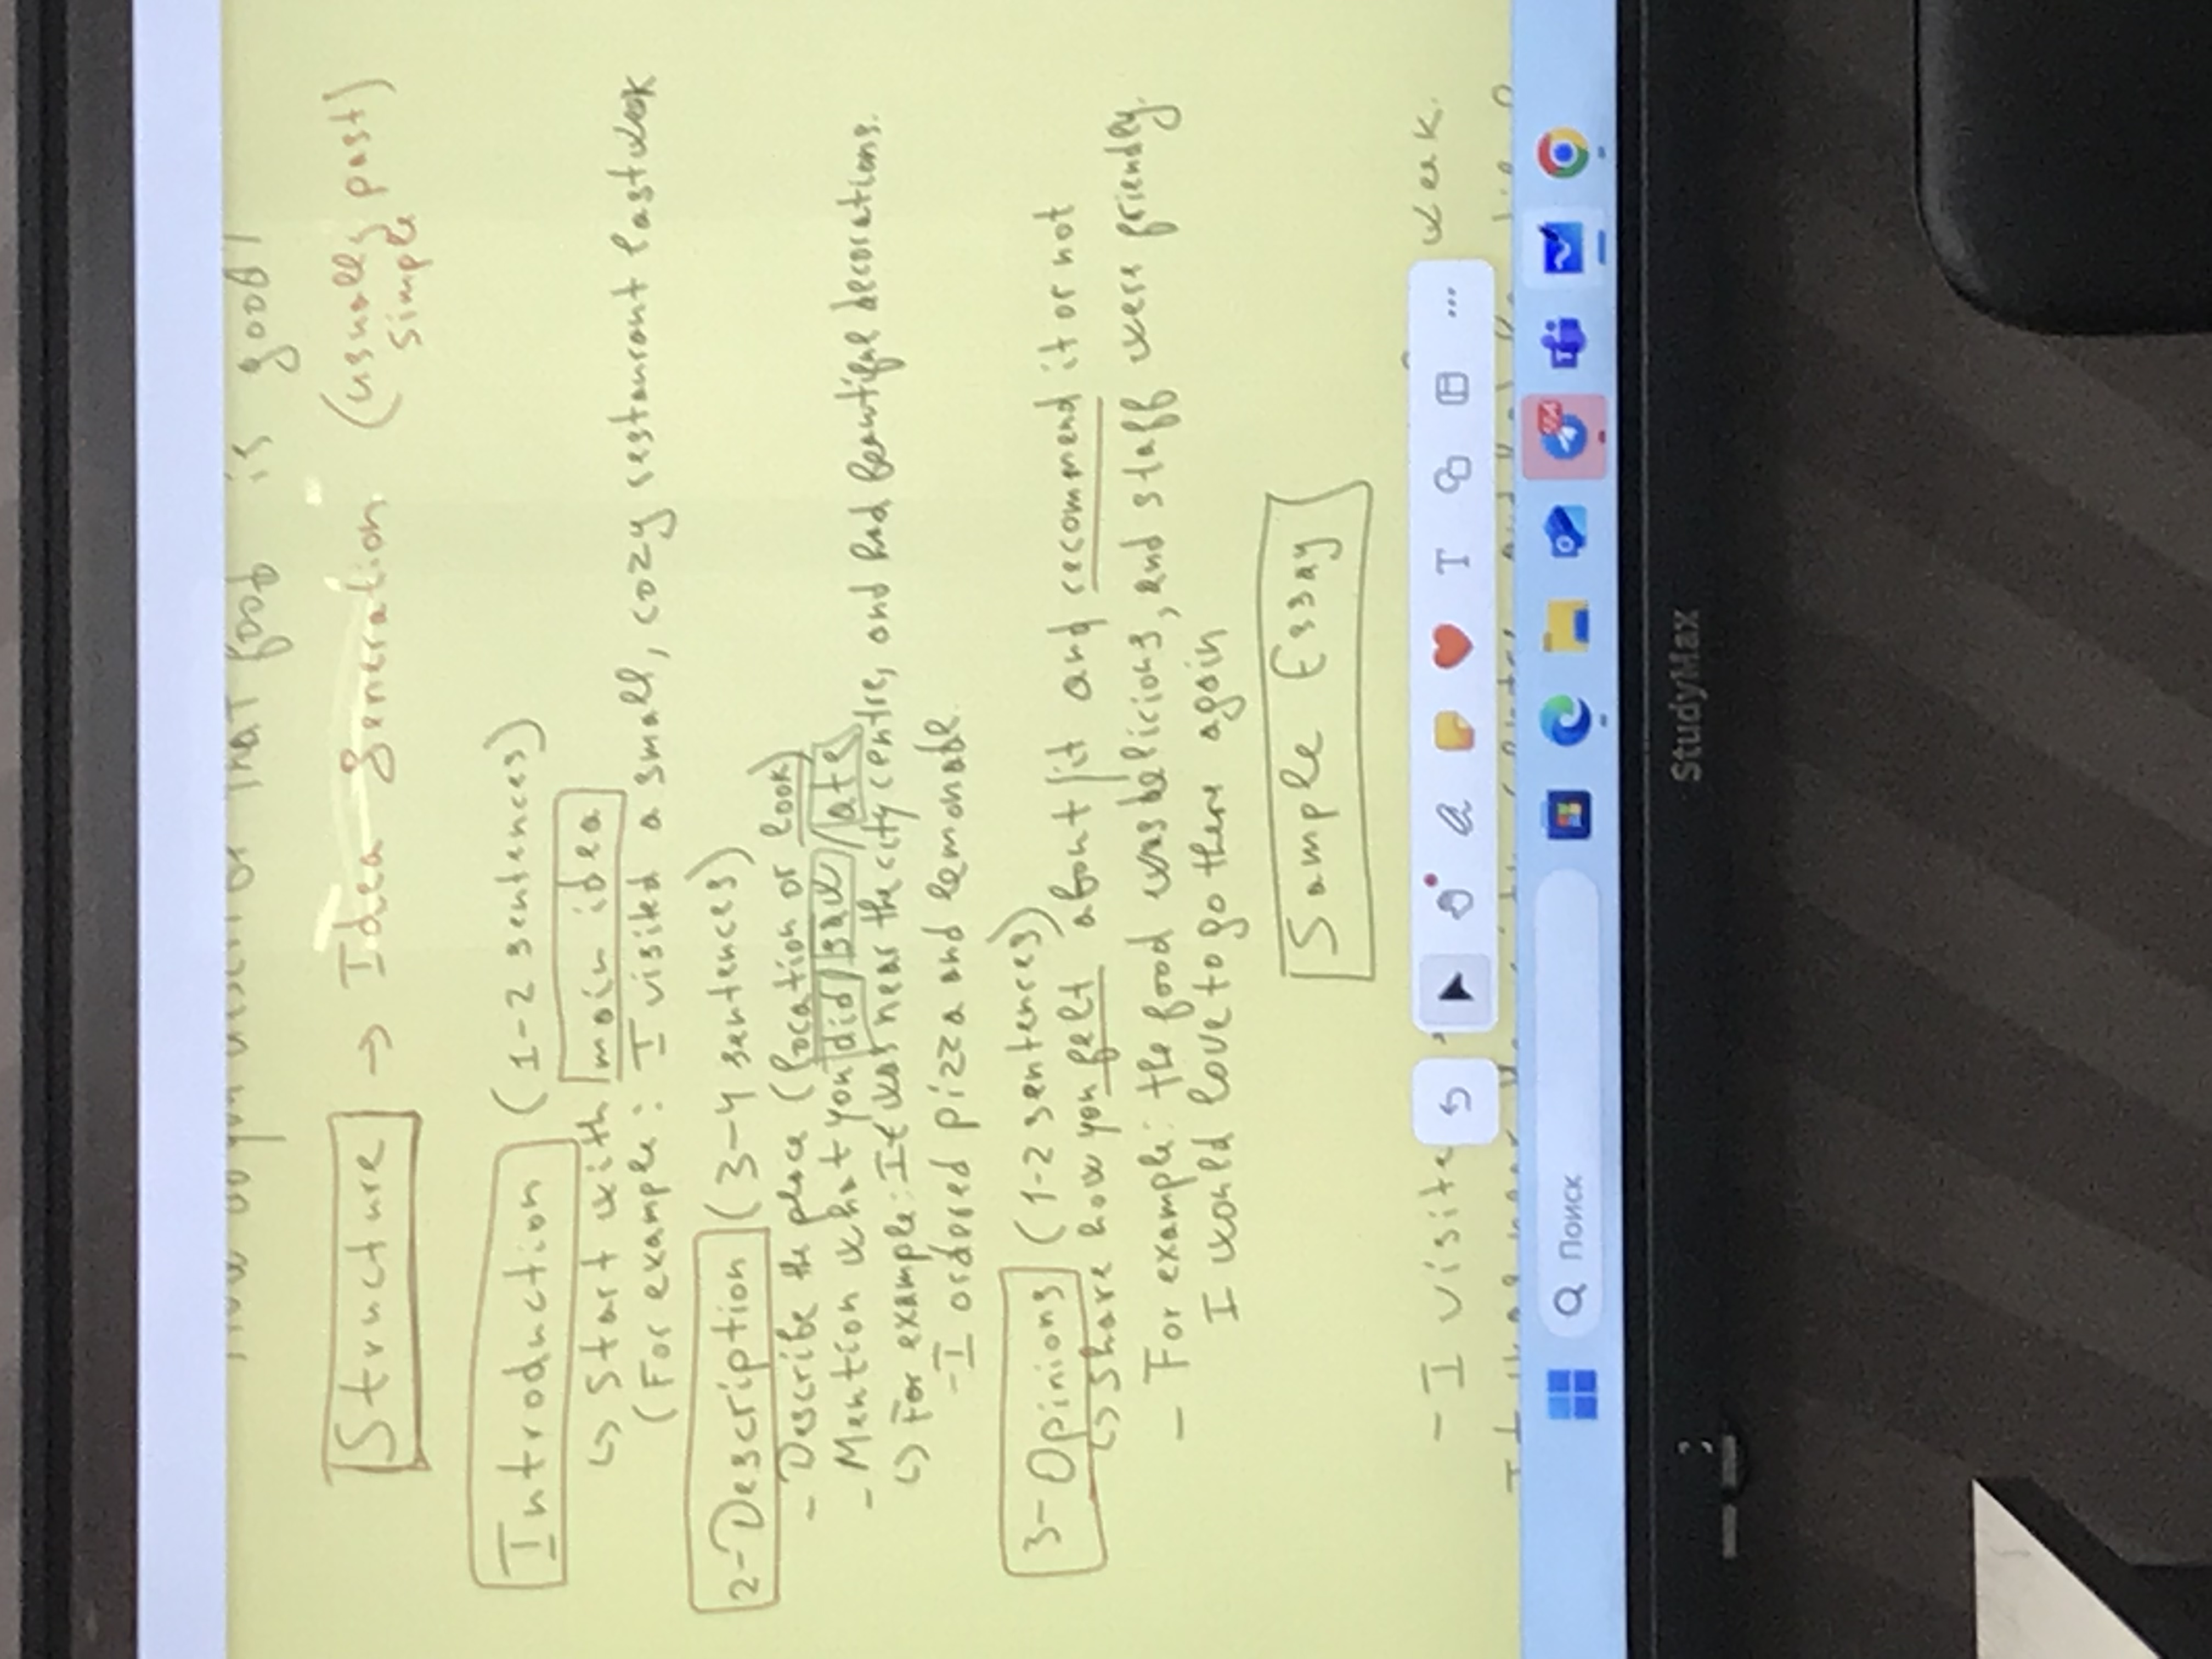 that food is good?
Structure → Idea Generation (usually past)
simple
Introduction (1-2 sentences)
↳ Start with main idea
(For example: I visited a small, cozy restaurant last week
2-Description (3-4 sentences)
- Describe the place (location or look)
- Mention what you did/saw/ate
↳ For example: It was near the city centre, and had beautiful decorations.
- I ordered pizza and lemonade.
3-Opinions (1-2 sentences)
↳ Share how you felt about it and recommend it or not
- For example: the food was delicious, and staff were friendly.
I would love to go there again
Sample Essay
- I visite week.
Поиск
StudyMax